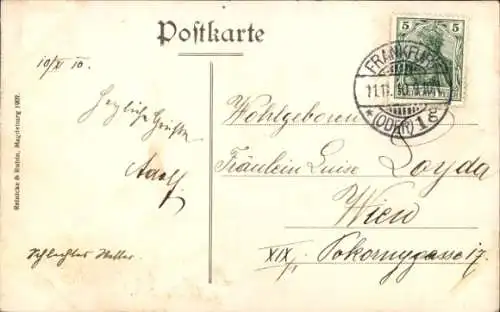 Postkarte
10/XI 10.
Herzliche Grüße
Adolf
Schlechtes Wetter
Reinicke & Rubin, Magdeburg 1907.
5 5
FRANKFURT
11.11.10
* (ODER) 1 g
Wohlgeboren
Fräulein Luise Loyda
Wien
XIX/1 Pokornygasse 17.